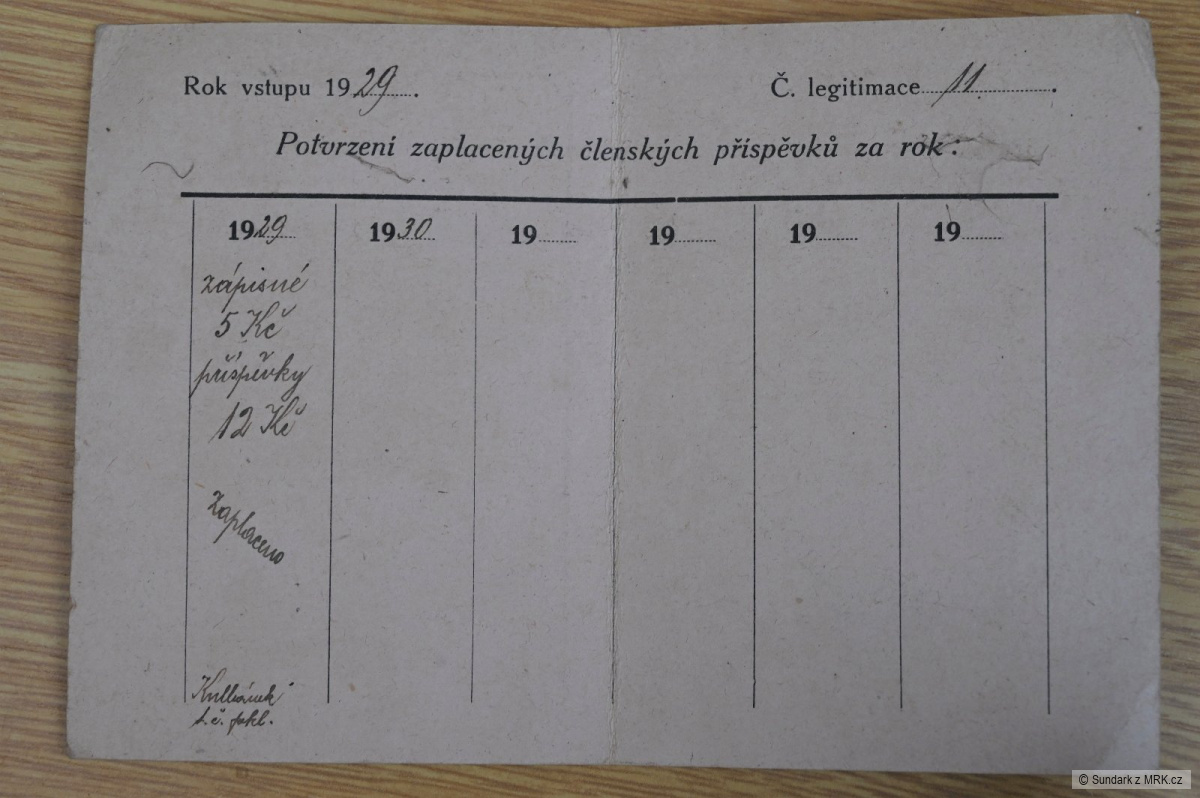 Rok vstupu 1929.
Č. legitimace 11.
Potvrzení zaplacených členských příspěvků za rok:
1929 1930 19 19 19 19
zápisné
5 Kč
příspěvky
12 Kč
Zaplaceno
t. č. pokl.
© Sundark z MRK.cz